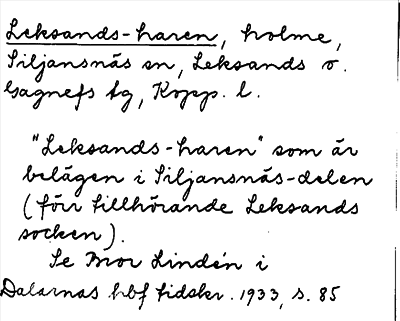 Leksands-haren, holme,
Siljansnäs sn, Leksands o.
Gagnefs tg, Kopp. l.
"Leksands-haren" som är
belägen i Siljansnäs-delen
(förr tillhörande Leksands
socken).
Se Mor Lindén i
Dalarnas hbf tidskr. 1933, s. 85